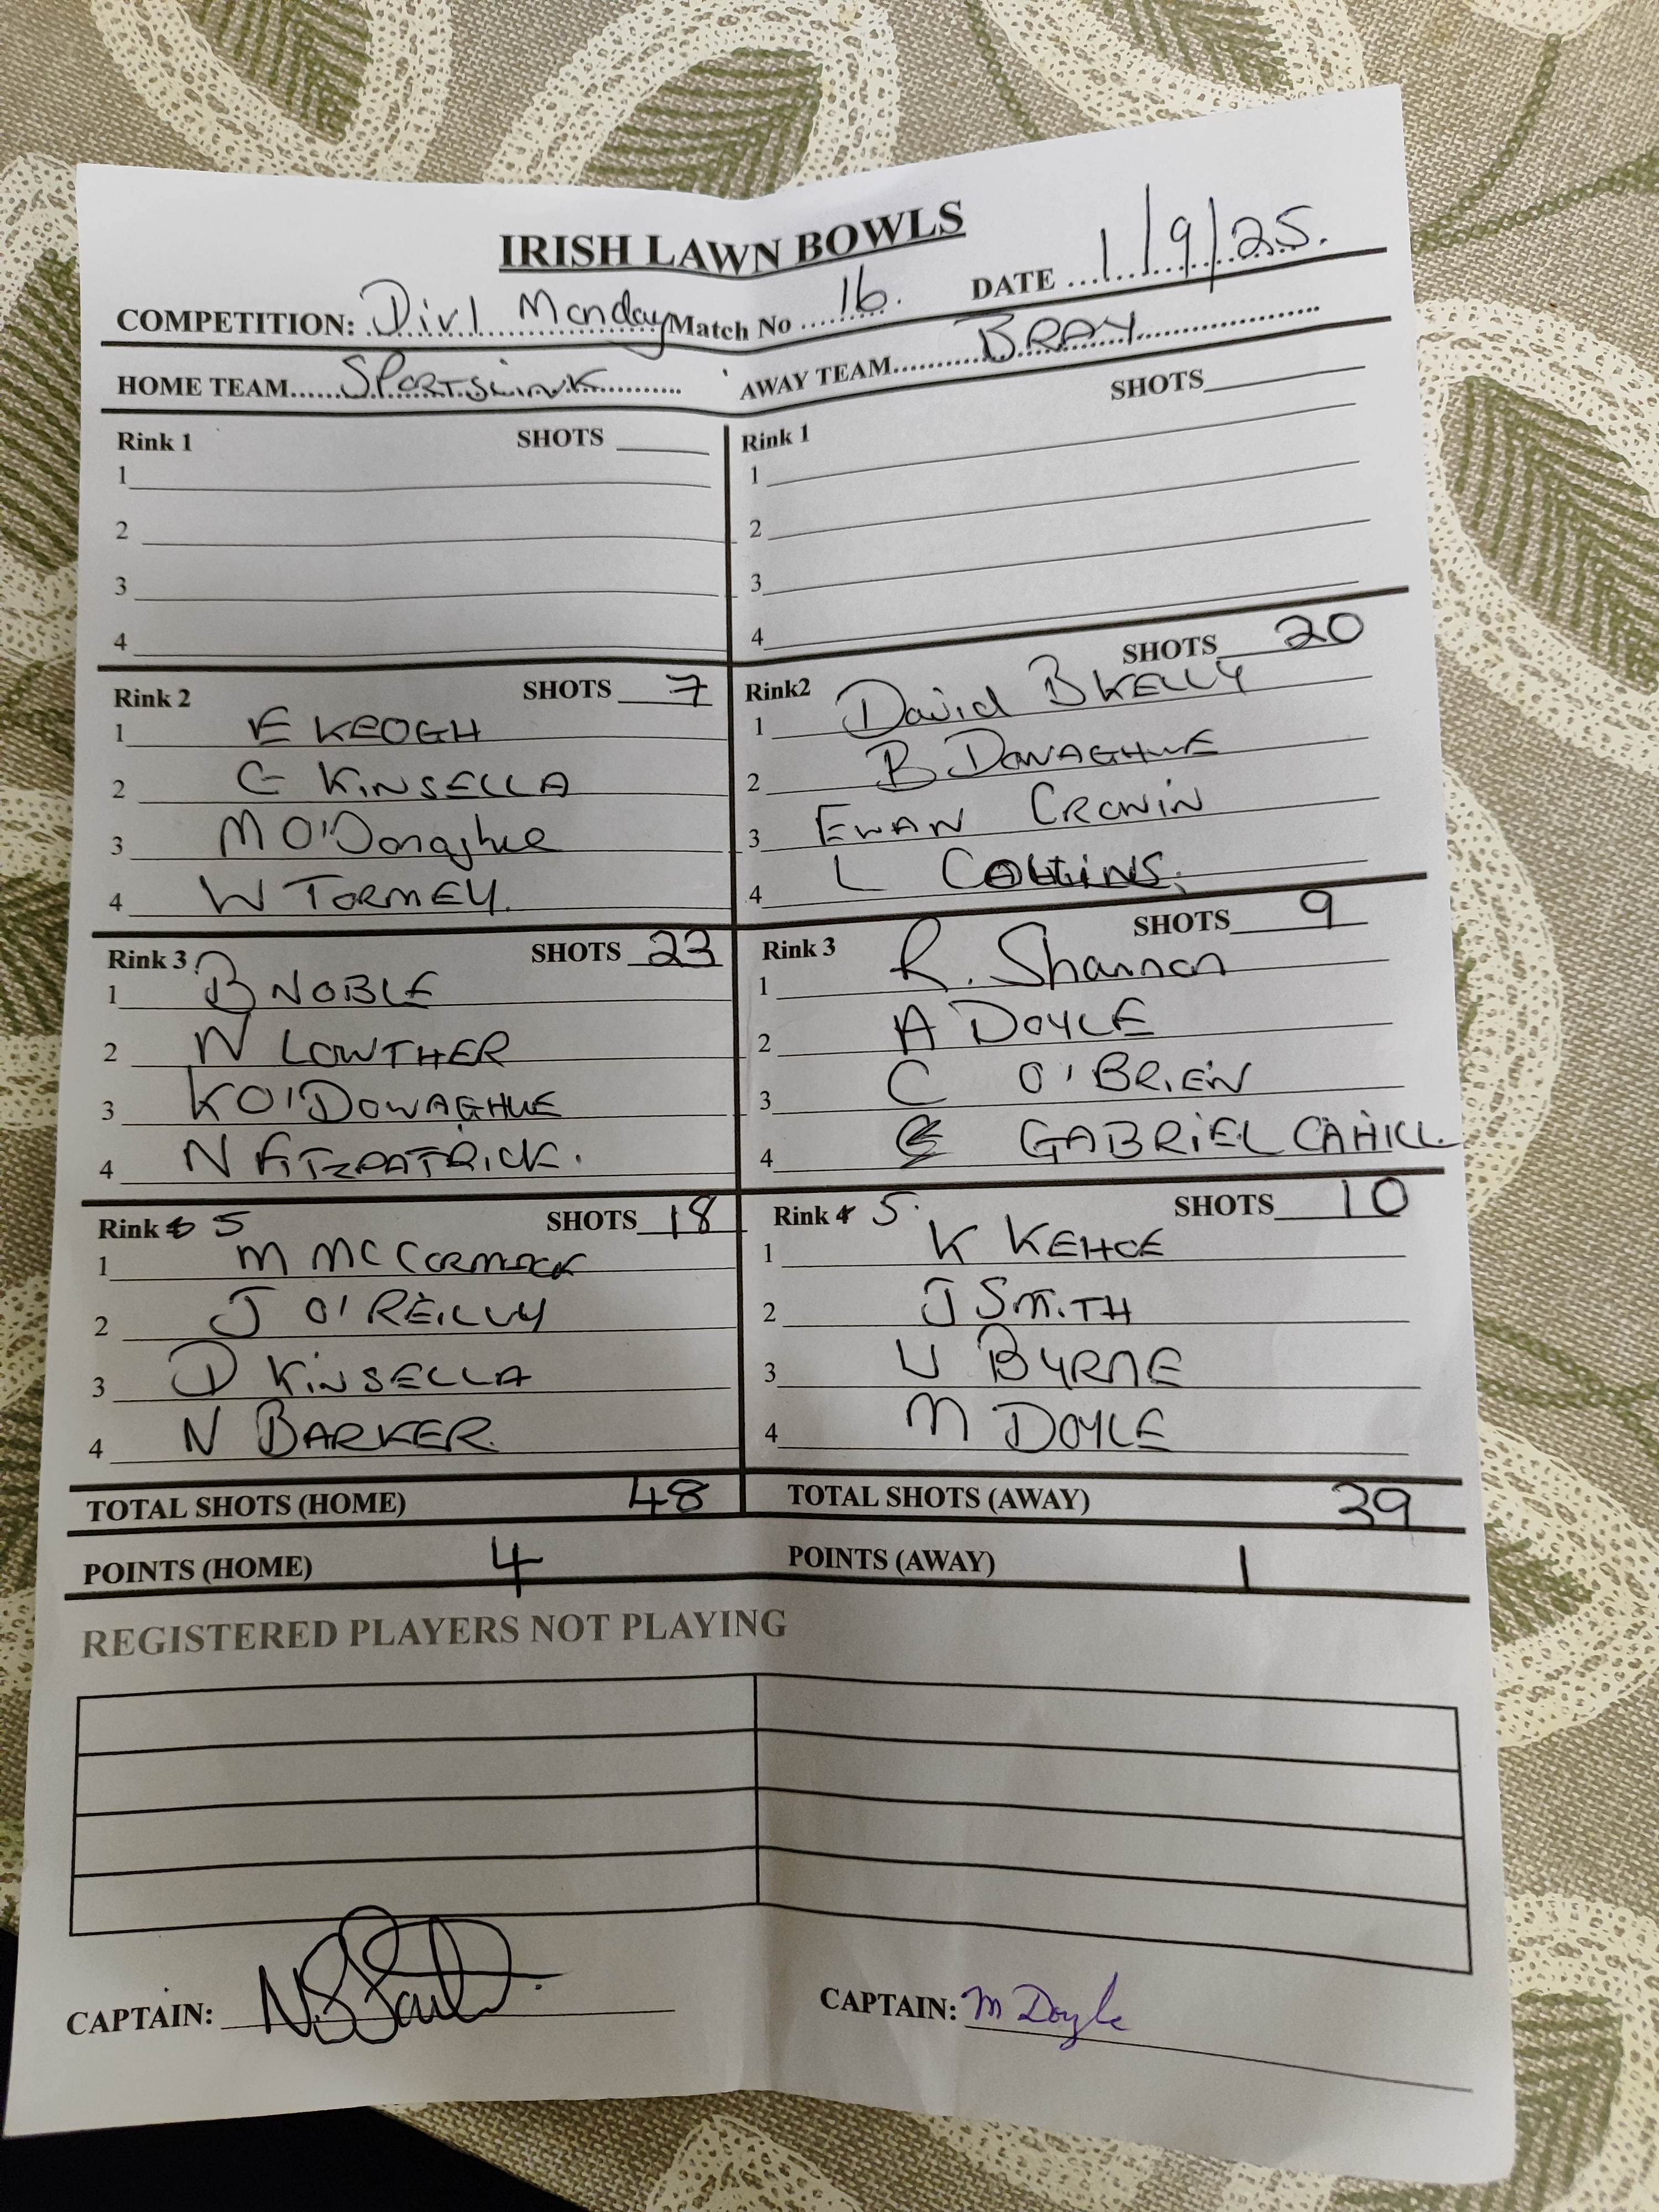 IRISH LAWN BOWLS
COMPETITION: Div 1 Monday Match No 16. DATE 1/9/25.
HOME TEAM SPORTSLINK AWAY TEAM BRAY
Rink 1 SHOTS
1
2
3
4
Rink 1 SHOTS
1
2
3
4
Rink 2 SHOTS 7
1 E KEOGH
2 C KINSELLA
3 M O'Donaghue
4 W TORMEY.
Rink2 SHOTS 20
1 David B KELLY
2 B DONAGHUE
3 EWAN CRONIN
4 L COLLINS.
Rink 3 SHOTS 23
1 B NOBLE
2 N LOWTHER
3 K O'DONAGHUE
4 N FITZPATRICK.
Rink 3 SHOTS 9
1 R. Shannon
2 A DOYLE
3 C O'BRIEN
4 GABRIEL CAHILL
Rink 5 SHOTS 18
1 M MCCORMACK
2 J O'REILLY
3 D KINSELLA
4 N BARKER.
Rink 4 5. SHOTS 10
1 K KEHOE
2 J SMITH
3 U BYRNE
4 M DOYLE
TOTAL SHOTS (HOME) 48 TOTAL SHOTS (AWAY) 39
POINTS (HOME) 4 POINTS (AWAY) 1
REGISTERED PLAYERS NOT PLAYING
CAPTAIN: CAPTAIN: M Doyle